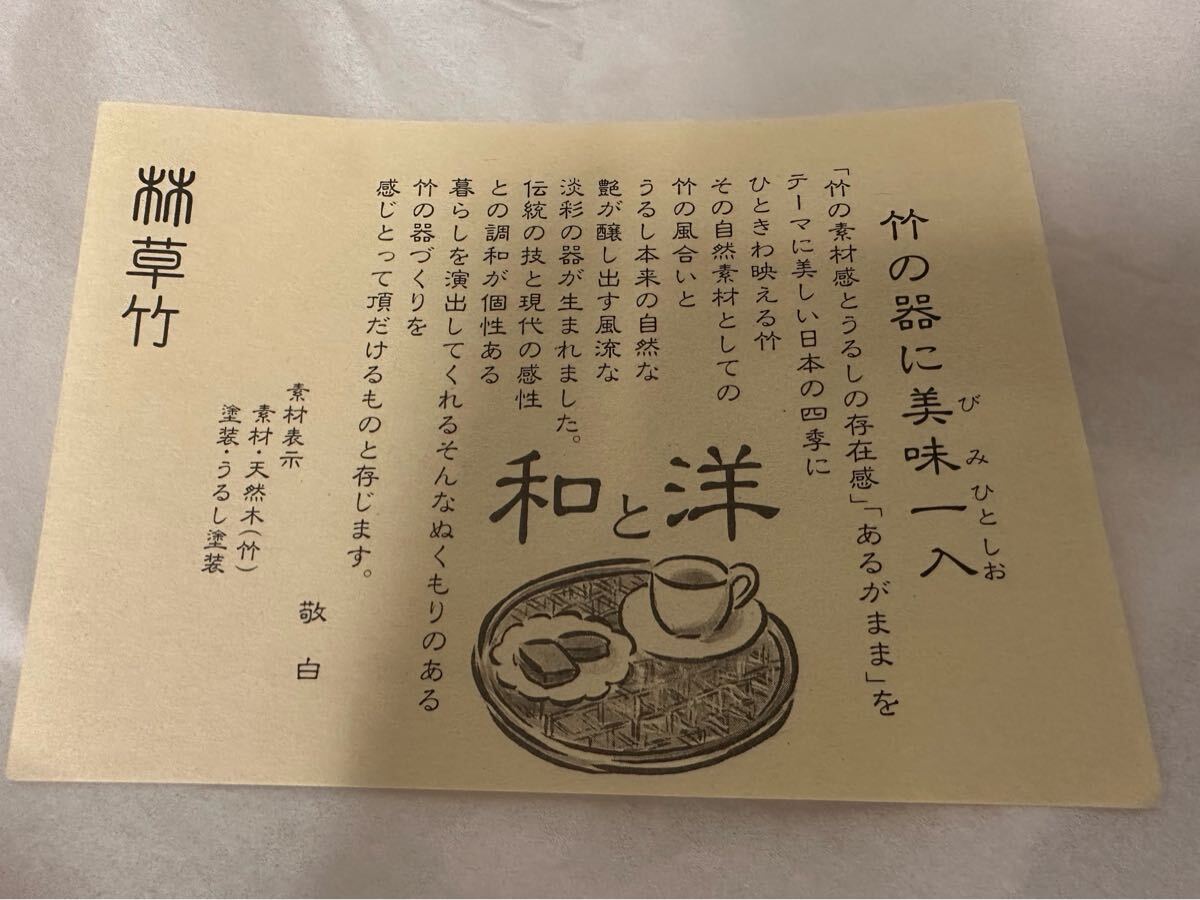 竹の器に美味一入
び み ひとしお
「竹の素材感とうるしの存在感」「あるがまま」を
テーマに美しい日本の四季に
ひときわ映える竹
その自然素材としての
竹の風合いと
うるし本来の自然な
艶が醸し出す風流な
淡彩の器が生まれました。
伝統の技と現代の感性
との調和が個性ある
暮らしを演出してくれるそんなぬくもりのある
竹の器づくりを
感じとって頂だけるものと存じます。
和と洋
敬白
素材表示
素材・天然木(竹)
塗装・うるし塗装
林草竹